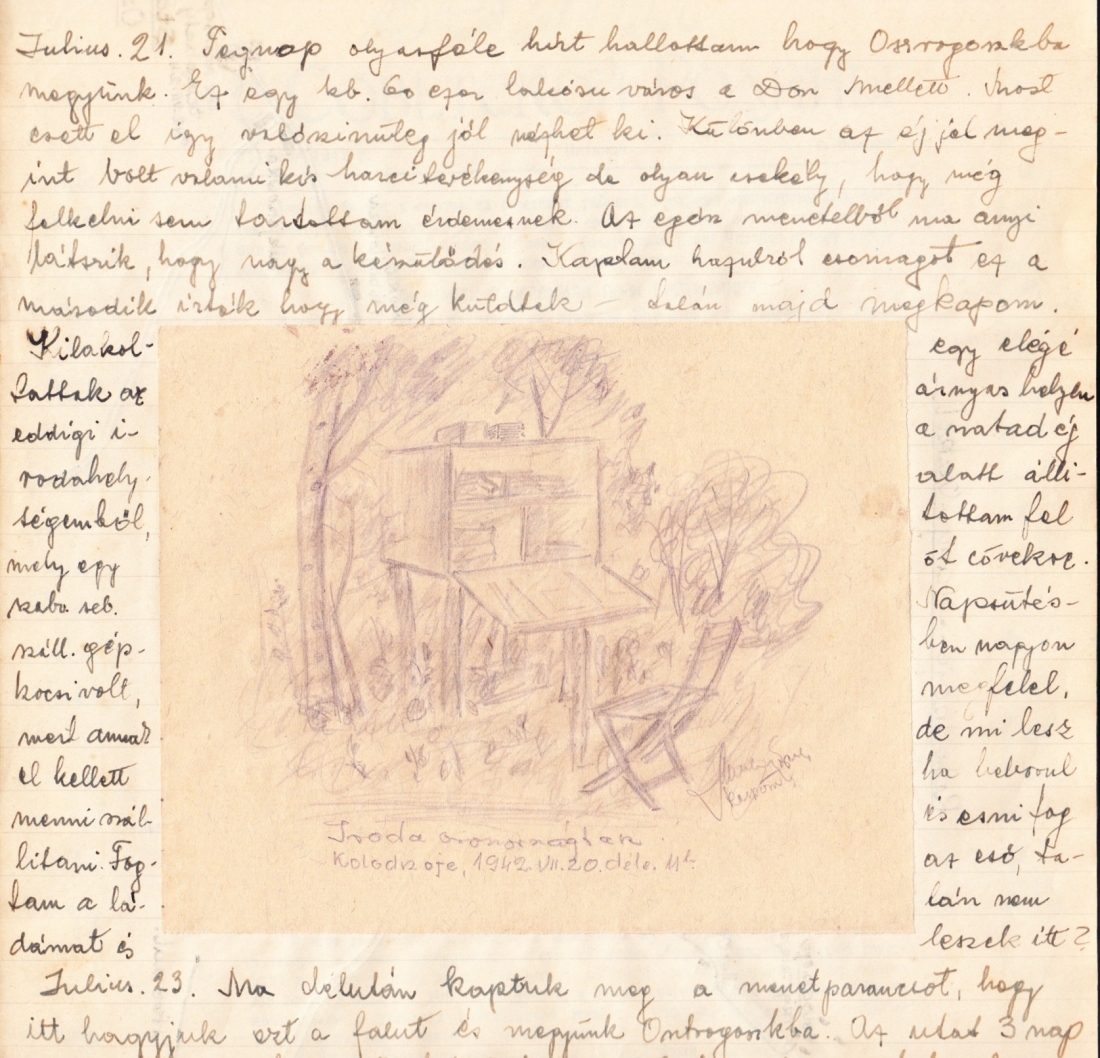 Julius. 21. Tegnap olyasféle hírt hallottam hogy Osrogoszkba
megyünk. Ez egy kb. 60 ezer lakósu város a Don mellett. Most
esett el igy valószinüleg jól nézhet ki. Különben az éjjel meg-
int volt valami kis harci tevékenység de olyan csekély, hogy még
felkelni sem tartottam érdemesnek. Az egész menetelből ma annyi
látszik, hogy nagy a készülődés. Kaptam hazulról csomagot ez a
második irták hogy még küldtek – talán majd megkapom.
Kilakol-
tattak az
eddigi i-
rodahely-
ségemből,
mely egy
seb.
száll. gép-
kocsi volt,
mert annak
el kellett
menni szál-
litani. Fog-
tam a lá-
dámat és
egy eléggé
árnyas helyen
a szabad ég
alatt álli-
tottam fel
öt cövekre.
Napsütés-
ben nagyon
megfelel,
de mi lesz
ha beborul
és esni fog
az eső, ta-
lán nem
leszek itt?
Iroda oroszországban
Kolodszoje, 1942. VII. 20. déle. 11h.
Julius. 23. Ma délután kaptuk meg a menetparancsot, hogy
itt hagyjuk ezt a falut és megyünk Ostrogoszkba. Az utat 3 nap